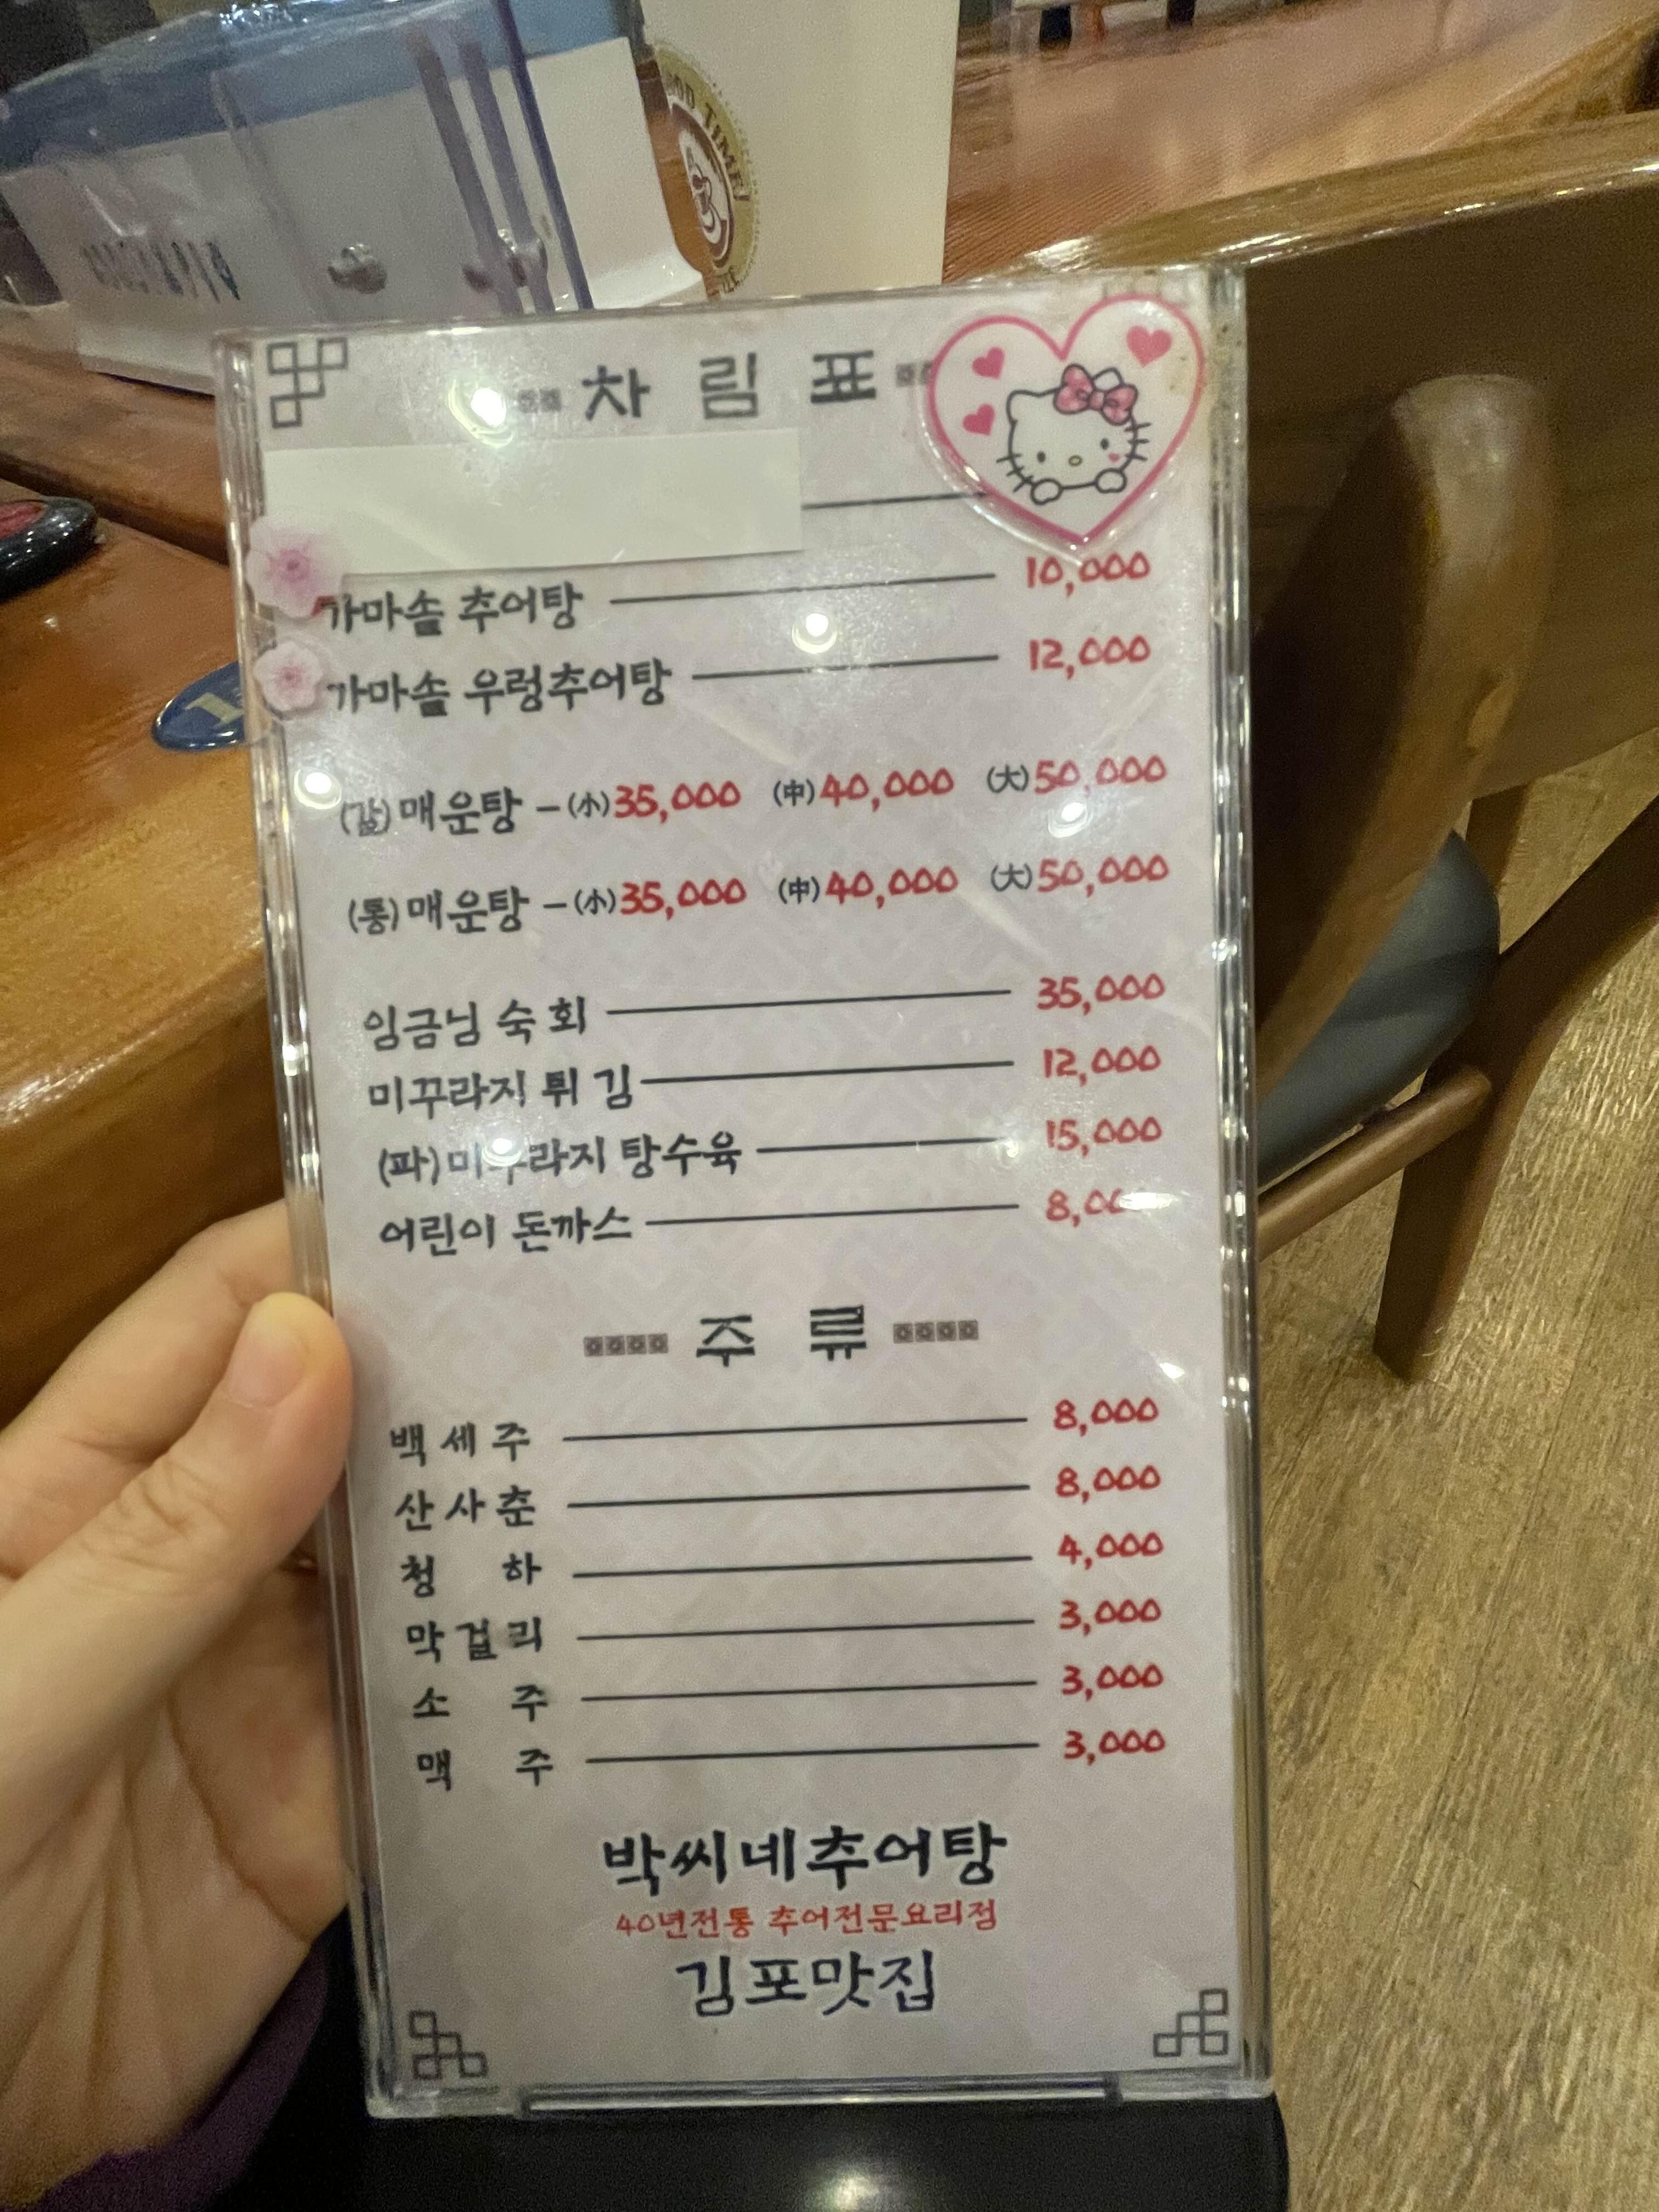 OOD TIME
차림표
가마솥 추어탕 10,000
가마솥 우렁추어탕 12,000
(갈)매운탕 - (小)35,000 (中)40,000 (大)50,000
(통)매운탕 - (小)35,000 (中)40,000 (大)50,000
임금님 숙회 35,000
미꾸라지 튀김 12,000
(파)미꾸라지 탕수육 15,000
어린이 돈까스 8,000
주류
백세주 8,000
산사춘 8,000
청하 4,000
막걸리 3,000
소주 3,000
맥주 3,000
박씨네추어탕
40년전통 추어전문요리점
김포맛집